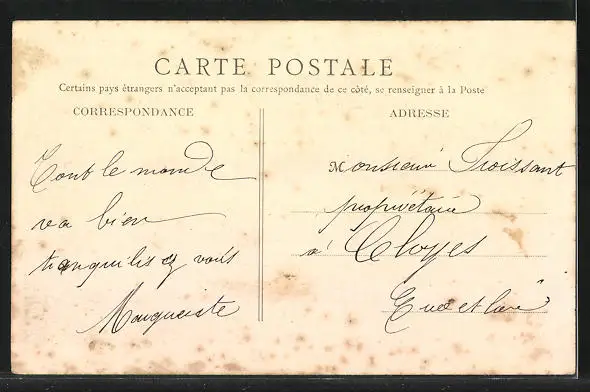 CARTE POSTALE
Certains pays étrangers n'acceptant pas la correspondance de ce côté, se renseigner à la Poste
CORRESPONDANCE
Tout le monde
va bien
tranquilisez vous
ADRESSE
Monsieur Froissant
propriétaire
à Cloyes
Eure et Loir